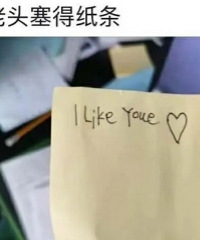 老头塞得纸条
I Like Youe ♡